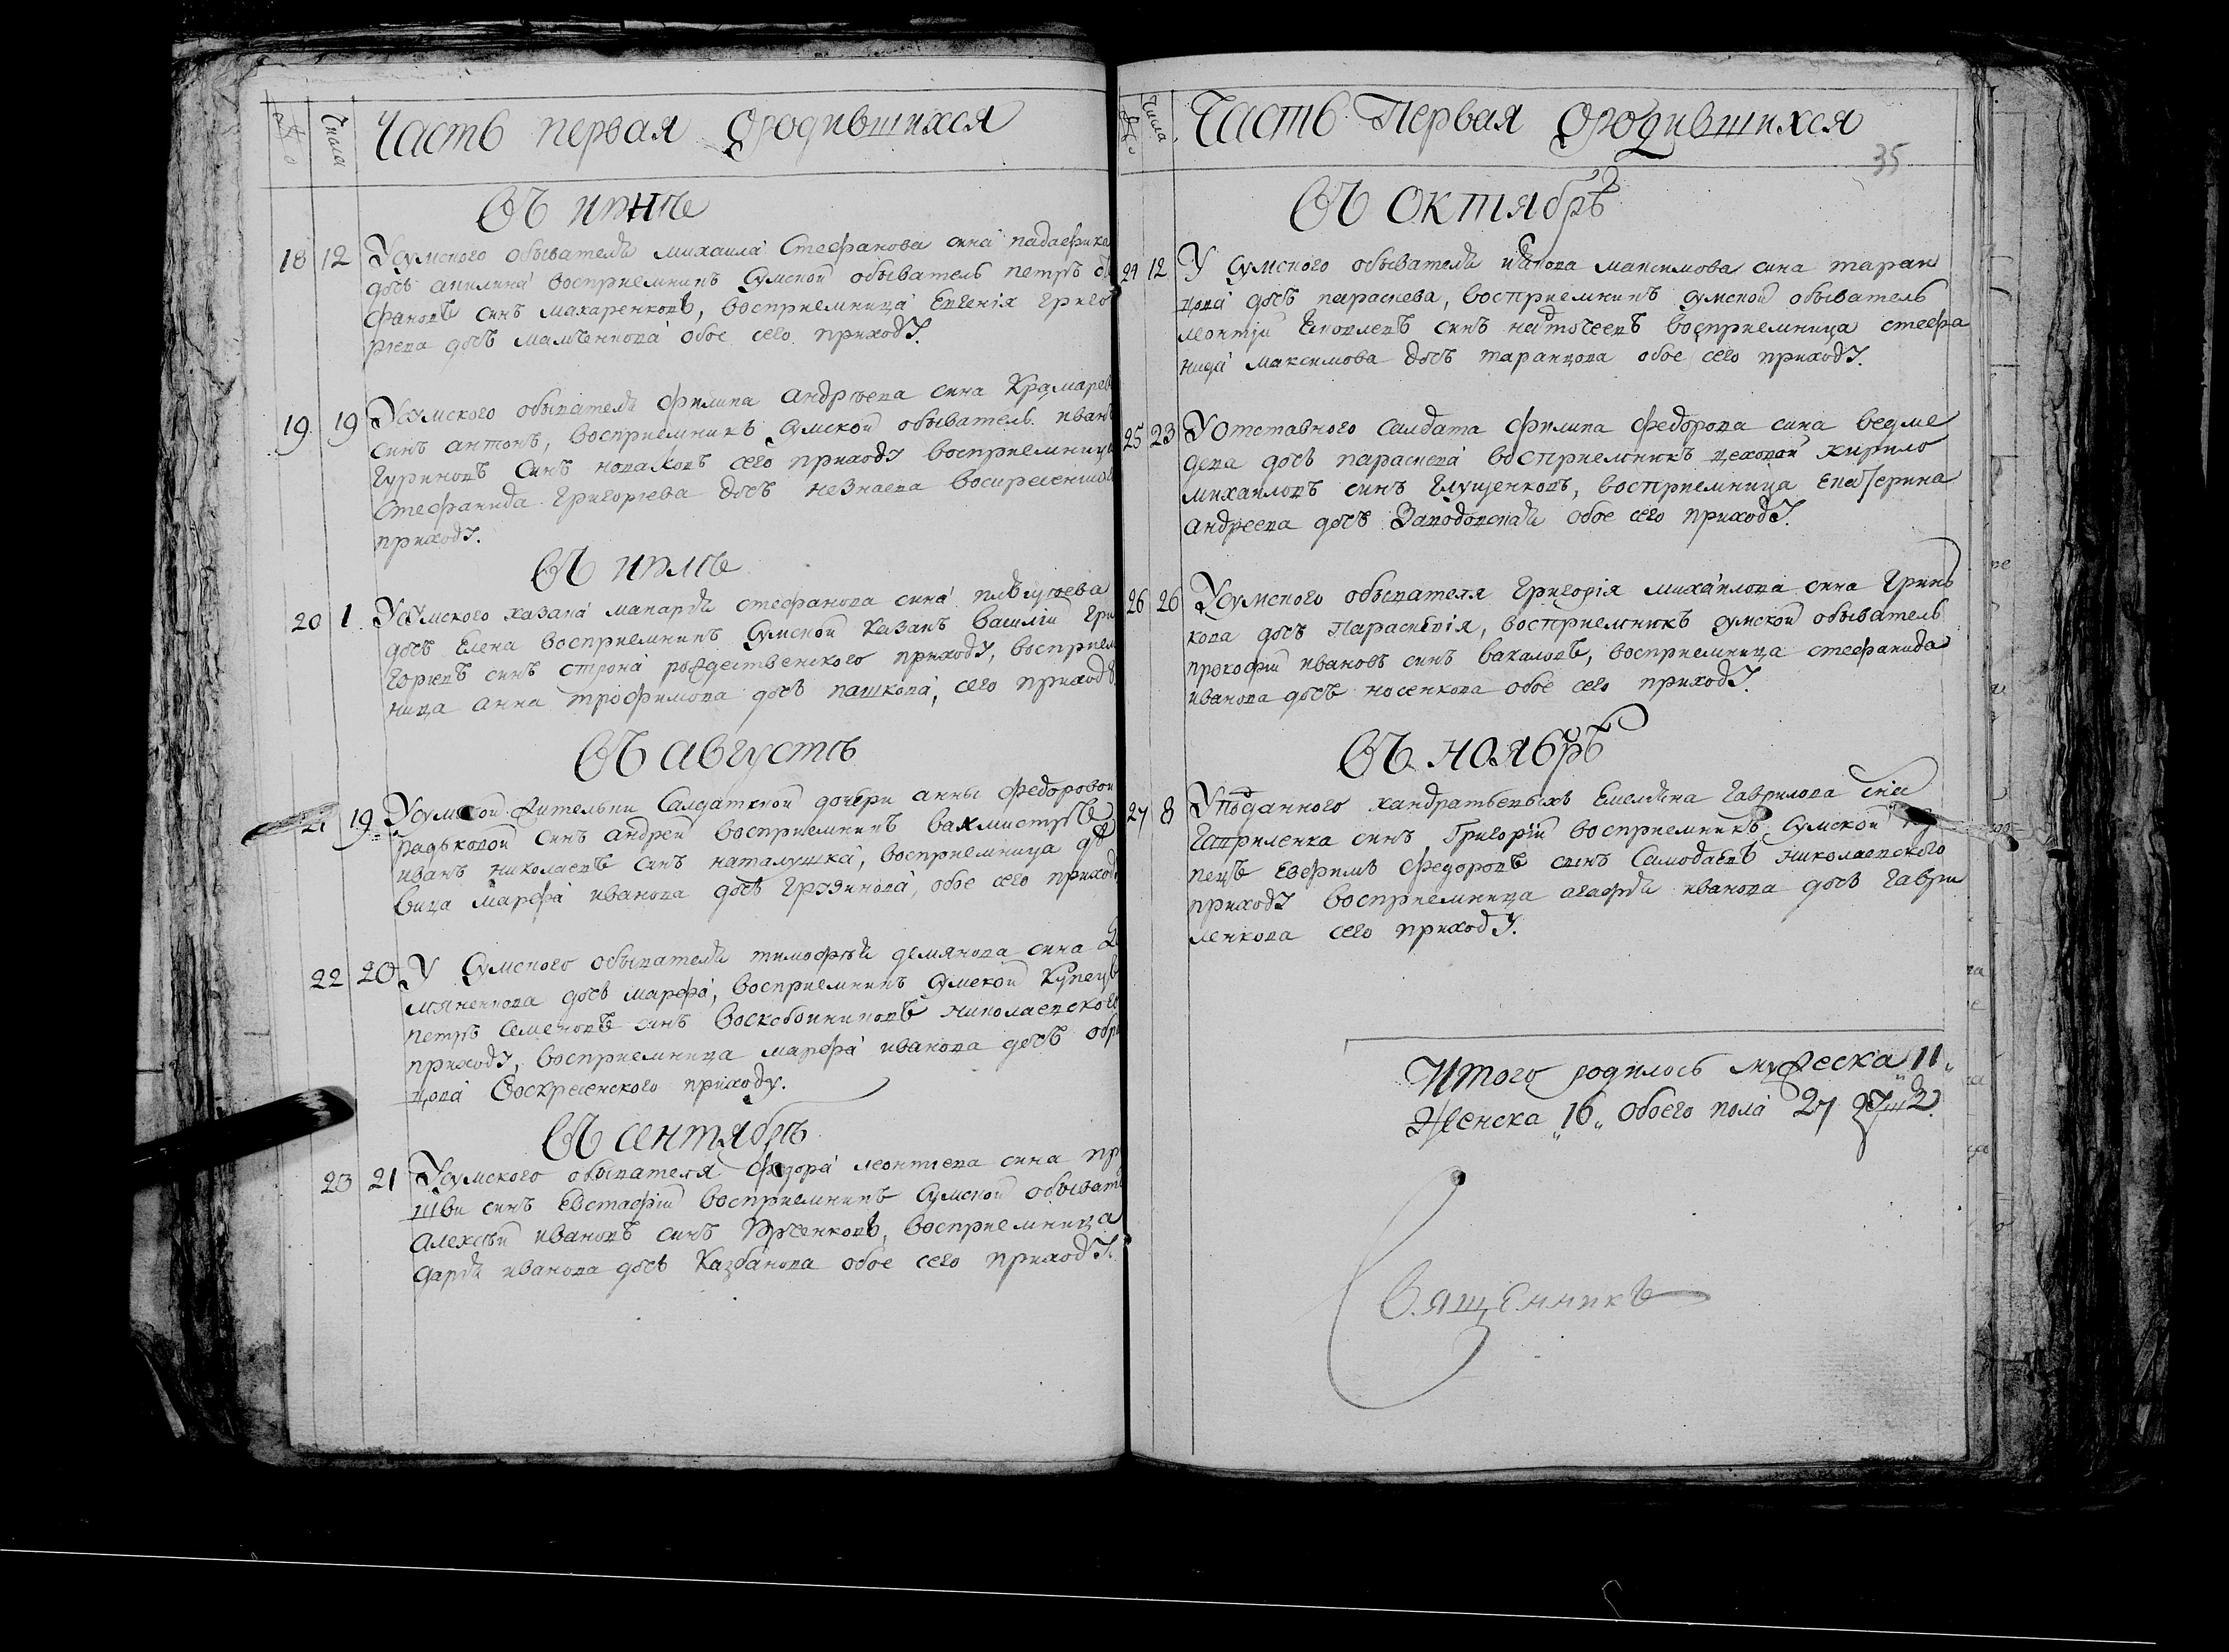 № Числа Часть первая ѡродившихся
Въ июнѣ
18 12 У сумского обывателя михаила Стефанова сина
дочь акилина восприемникъ сумской обыватель петръ сте
фановъ синъ макаренковъ, восприемница Евгенія григо
риева дочь мамченкова обое сего приходу.
19 19 У сумского обывателя филипа андрѣева сина Крамарев
синъ антонъ, восприемникъ сумской обыватель иванъ
гуриновъ синъ новаковъ сего приходу восприемница
Стефанида григориева дочь незнаева воскресенског
приходу.
Въ июлѣ
20 1 У сумского казака макаря стефанова сина
дочь Елена восприемникъ сумской казакъ василій гри
гориевъ синъ строка рождественского приходу, восприем
ница анна трофимова дочь пашкова, сего приходу
Въ августѣ
21 19 У сумской жителки салдатской дочери анны федоровой
радковой синъ андрей восприемникъ вахмистръ
иванъ николаевъ синъ наталушка, восприемница дѣ
вица марфа иванова дочь грязнова, обое сего приход
22 20 У сумского обывателя тимофѣя демянова сина де
мяненкова дочь марфа, восприемникъ сумской купецъ
петръ семеновъ синъ воскобойниковъ николаевского
приходу, восприемница марфа иванова дочь
цова Воскресенского приходу.
Въ сентябрѣ
23 21 У сумского обывателя федора леонтиева сина пр
шви синъ Евстафій восприемникъ сумской обывате
алексѣй ивановъ синъ Юрченковъ, восприемница
даря иванова дочь Казбанова обое сего приходу.
№ Числа Часть Первая ѡродившихся
35
Въ октябрѣ
24 12 У сумского обывателя якова максимова сина таран
цова дочь параскева, восприемникъ сумской обыватель
леонтій яковлевъ синъ восприемница стефа
нида максимова дочь таранцова обое сего приходу.
25 23 У отставного салдата филипа федорова сина ведме
дева дочь параскева восприемникъ цеховой кирило
михаиловъ синъ глущенковъ, восприемница екатерина
андреева дочь Заводовская обое сего приходу.
26 26 У сумского обывателя григорія михаилова сина гринь
кова дочь Параскевія, восприемникъ сумской обыватель
прокофій ивановъ синъ вакаловъ, восприемница стефанида
иванова дочь носенкова обое сего приходу.
Въ ноябрѣ
27 8 У подданного кандратьевыхъ Емеляна гаврилова сина
гавриленка синъ григорій восприемникъ сумской ку
пецъ Евфимъ федоровъ синъ самодаевъ николаевского
приходу восприемница агафя иванова дочь гаври
ленкова сего приходу.
Итого родилось мужеска 11
Женска 16 обоего пола 27 душъ
Священникъ